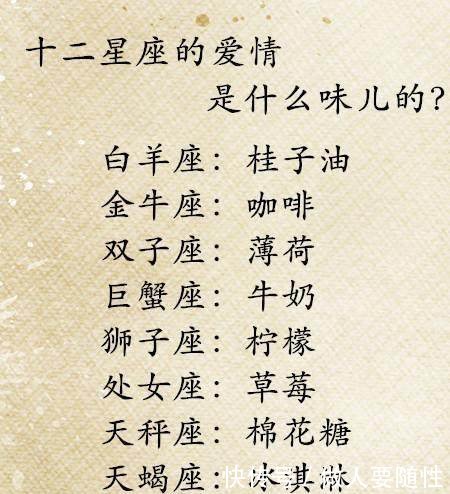 十二星座的爱情
是什么味儿的?
白羊座: 桂子油
金牛座: 咖啡
双子座: 薄荷
巨蟹座: 牛奶
狮子座: 柠檬
处女座: 草莓
天秤座: 棉花糖
天蝎座: 冰淇淋
做人要随性